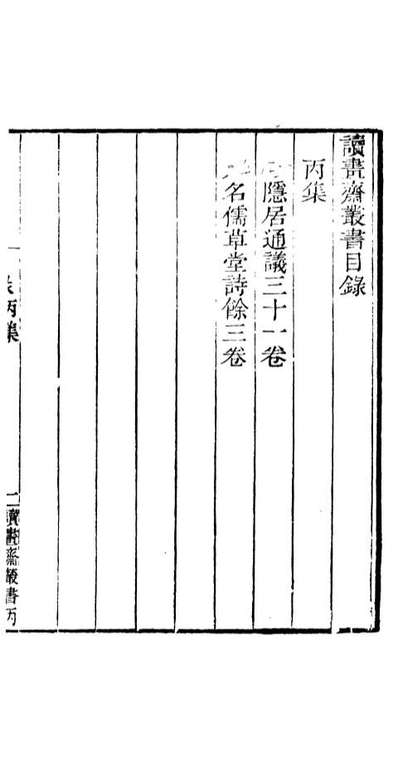 讀書齋叢書目錄
丙集
隱居通議三十一卷
名儒草堂詩餘三卷
丙集
二 讀書齋叢書丙